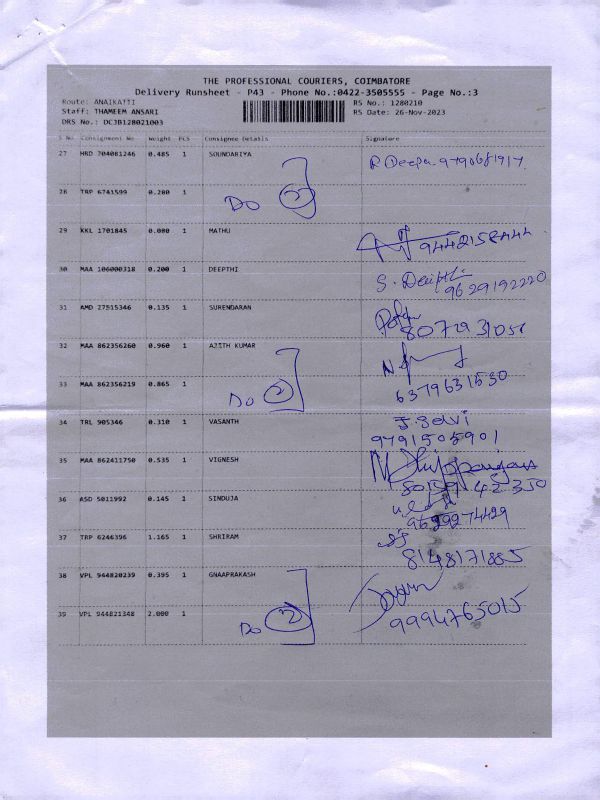 THE PROFESSIONAL COURIERS, COIMBATORE
Delivery Runsheet - P43 - Phone No.:0422-3505555 - Page No.:3
Route: ANAIKATTI RS No.: 1280210
Staff: THAMEEM ANSARI RS Date: 26-Nov-2023
DRS No.: DCJB128021003
S No Consignment No Weight PCS Consignee Details Signature
27 HRD 704081246 0.485 1 SOUNDARIYA R Deepa 9790681917
28 TRP 6741599 0.200 1 DO 2
29 KKL 1701845 0.080 1 MATHU
30 MAA 106000318 0.200 1 DEEPTHI S. Deepthi
9629192220
31 AMD 27515346 0.135 1 SURENDARAN
32 MAA 862356260 0.960 1 AJITH KUMAR
33 MAA 862356219 0.865 1 DO 2 6379631530
34 TRL 905346 0.310 1 VASANTH J. Selvi
9791505901
35 MAA 862411750 0.535 1 VIGNESH
36 ASD 5011992 0.145 1 SINDUJA
9629274429
37 TRP 6246396 1.165 1 SHRIRAM
8148171885
38 VPL 944820239 0.395 1 GNAAPRAKASH
39 VPL 944821348 2.000 1 DO 2 9994765015